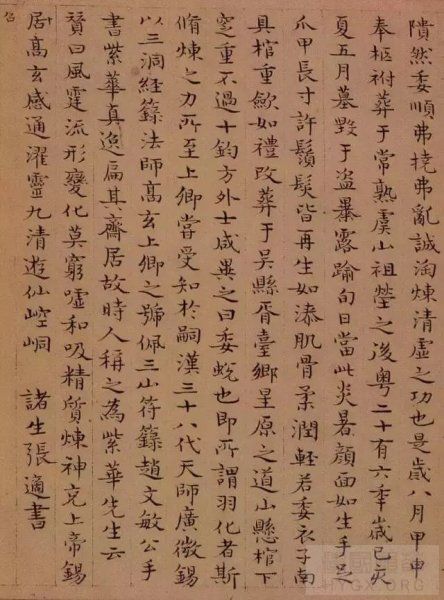 隤然委順弗撓弗亂誠淘煉清虛之功也是歲八月甲申
奉柩祔葬于常熟虞山祖塋之後粤二十有六秊歲已亥
夏五月墓毀于盜暴露踰旬日當此炎暑顏面如生手足
爪甲長寸許鬚髮皆再生如漆肌骨柔潤輕若委衣子南
具棺重斂如禮改葬于吳縣胥臺鄉星原之道山縣棺下
窆重不過十鈞方外士咸異之曰委蛻也即所謂羽化者斯
脩煉之力所至上卿嘗受知於嗣漢三十八代天師廣微錫
以三洞經籙法師髙玄上卿之號佩三山符籙趙文敏公手
書紫華真逸扁其齋居故時人稱之為紫華先生云
贊曰風霆流形變化莫窮噓和吸精質煉神充上帝錫
居髙玄感通濯靈九清遊仙崆峒 諸生張適書
HYGX.ORG